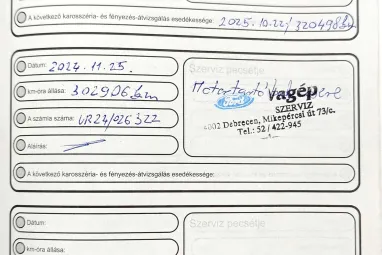 A következő karosszéria- és fényezés-átvizsgálás esedékessége: 2025.10.22/320498km
Dátum: 2024.11.25.
Szerviz pecsétje
km-óra állása: 302906 km
Motortartó csere
Ford Vagép
SZERVIZ
4002 Debrecen, Mikepércsi út 73/c.
Tel.: 52/422-945
A számla száma: UR24/026322
Aláírás:
A következő karosszéria- és fényezés-átvizsgálás esedékessége:
Dátum:
Szerviz pecsétje
km-óra állása: